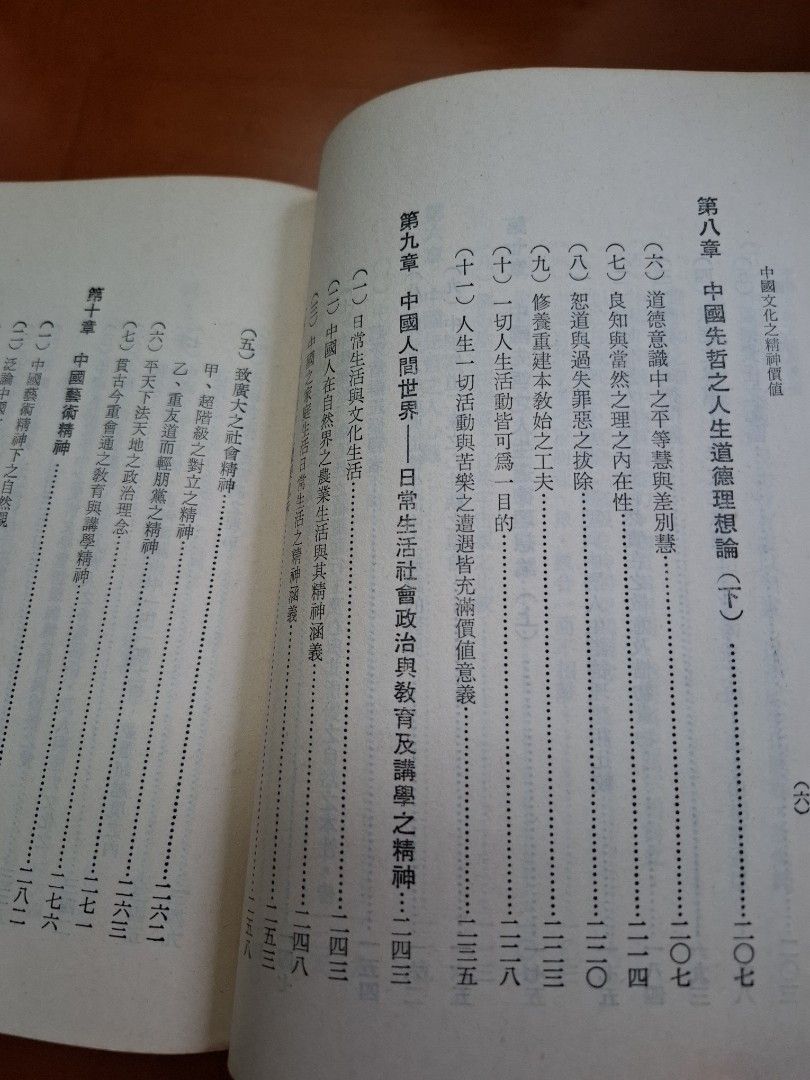 中國文化之精神價值
(六)
第八章　中國先哲之人生道德理想論(下)…二〇七
(六)道德意識中之平等慧與差別慧…二〇七
(七)良知與當然之理之內在性…二一四
(八)恕道與過失罪惡之拔除…二二〇
(九)修養重建本教始之工夫…二二三
(十)一切人生活動皆可爲一目的…二二八
(十一)人生一切活動與苦樂之遭遇皆充滿價值意義…二三五
第九章　中國人間世界——日常生活社會政治與教育及講學之精神…二四三
(一)日常生活與文化生活…二四三
(二)中國人在自然界之農業生活與其精神涵義…二四八
(三)中國之家庭生活日常生活之精神涵義…二五三
二五八
(五)致廣大之社會精神
甲、超階級之對立之精神
乙、重友道而輕朋黨之精神
(六)平天下法天地之政治理念…二六二
(七)貫古今重會通之教育與講學精神…二六三
第十章　中國藝術精神…二七一
(一)中國藝術精神下之自然觀…二七六
(二)泛論中國…二八二